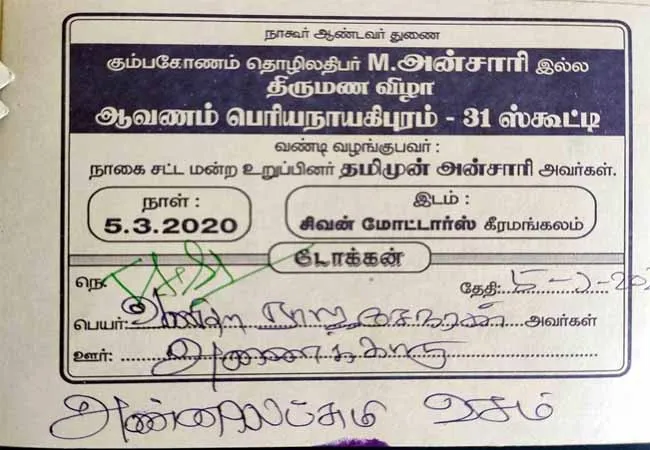 நாகூர் ஆண்டவர் துணை
கும்பகோணம் தொழிலதிபர் M.அன்சாரி இல்ல
திருமண விழா
ஆவணம் பெரியநாயகிபுரம் - 31 ஸ்கூட்டி
வண்டி வழங்குபவர் :
நாகை சட்ட மன்ற உறுப்பினர் தமிமுன் அன்சாரி அவர்கள்.
நாள் :
5.3.2020
இடம் :
சிவன் மோட்டார்ஸ் கீரமங்கலம்
டோக்கன்
நெ.
தேதி:
பெயர்: அவர்கள்
ஊர்: